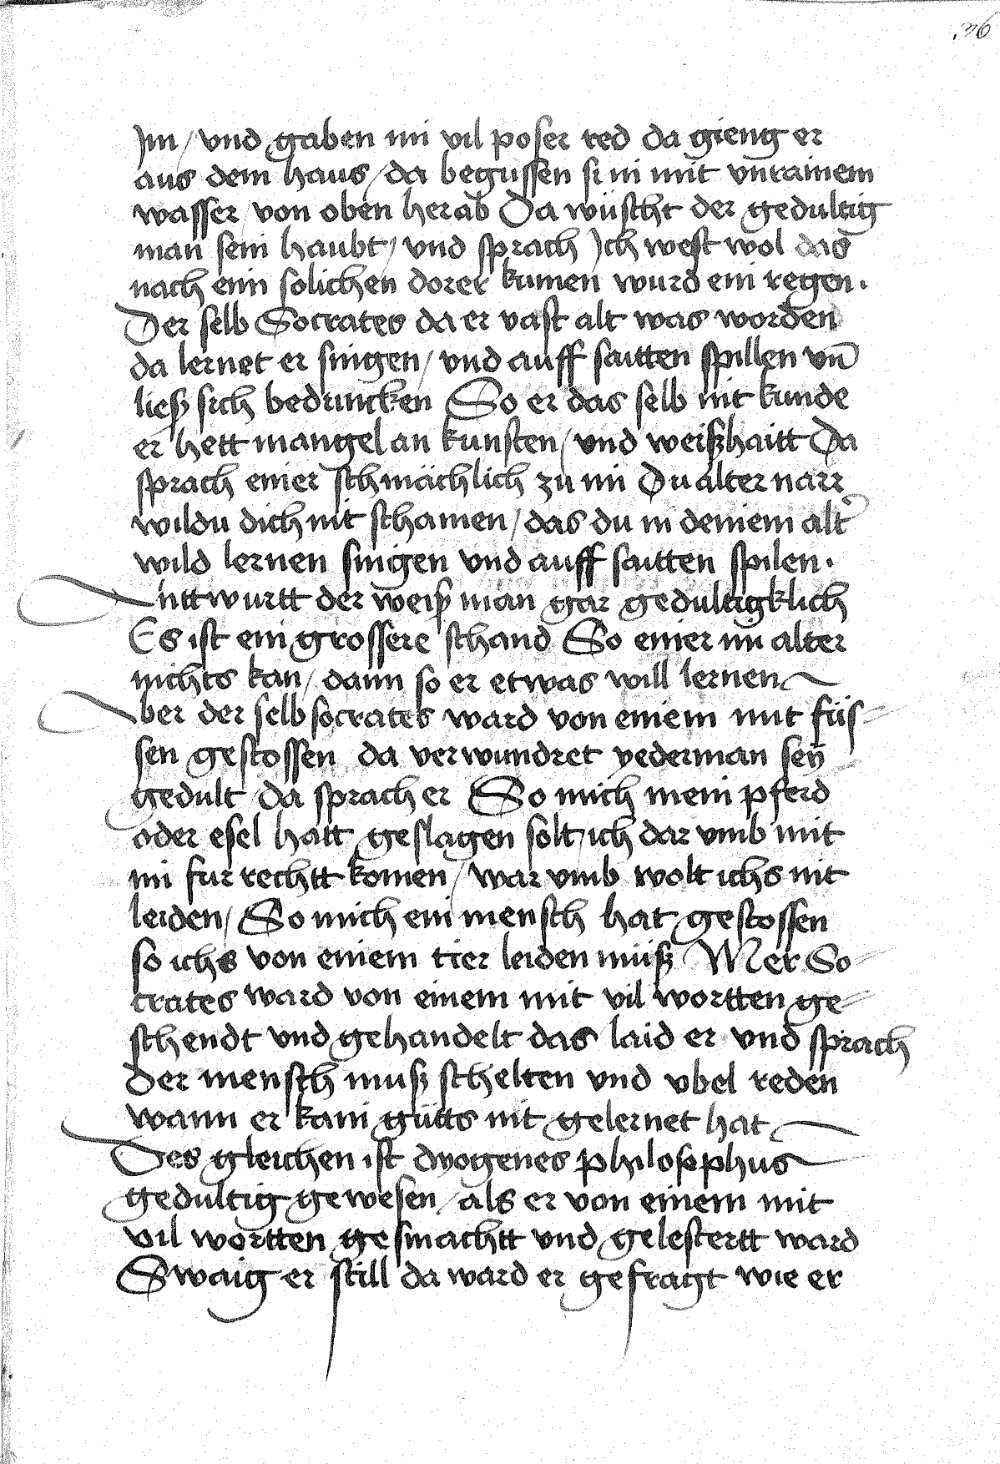 36
Im / vnd gaben im vil poser red da gieng er
aus dem haus / da begussen si in mit vnrainem
wasser / von oben herab Da wüscht der gedultig
man sein haubt / vnd sprach Ich west wol das
nach eim solichen dorer kumen wurd ein regen .
Der selb Socrates da er vast alt was worden
da lernet er singen / vnd auff saitten spillen vn̄
ließ sich bedunncken So er das selb nit kunde
er hett mangel an kunsten / vnd weißhaitt Da
sprach einer schmächlich zu im Du alter narr
wildu dich nit schamen / das du in deinem alt͛
wild lernen singen vnd auff saitten spilen .
Anttwurtt der weiß man gar gedultigklich
Es ist ein grossere schand So einer im alter
nichts kan / dann so er etwas will lernen
Aber der selb socrates ward von einem mit füs-
sen gestossen da verwundret yederman sein
gedult / da sprach er So mich mein pferd
oder esel hatt geslagen solt ich dar vmb mit
im fur rechtt komen / war vmb wolt ichs nit
leiden / So mich ein mensch hat gestossen
so ichs von einem tier leiden müß Mer So-
crates ward von einem mit vil wortten ge-
schendt vnd gehandelt das laid er vnd sprach
der mensch muß schelten vnd vbel reden
wann er kain gütts nit gelernet hat
Des gleichen ist dyogenes philosophus
gedultig gewesen / als er von einem mit
vil wortten gesmachtt vnd gelestertt ward
Swaig er still da ward er gefragt wie er